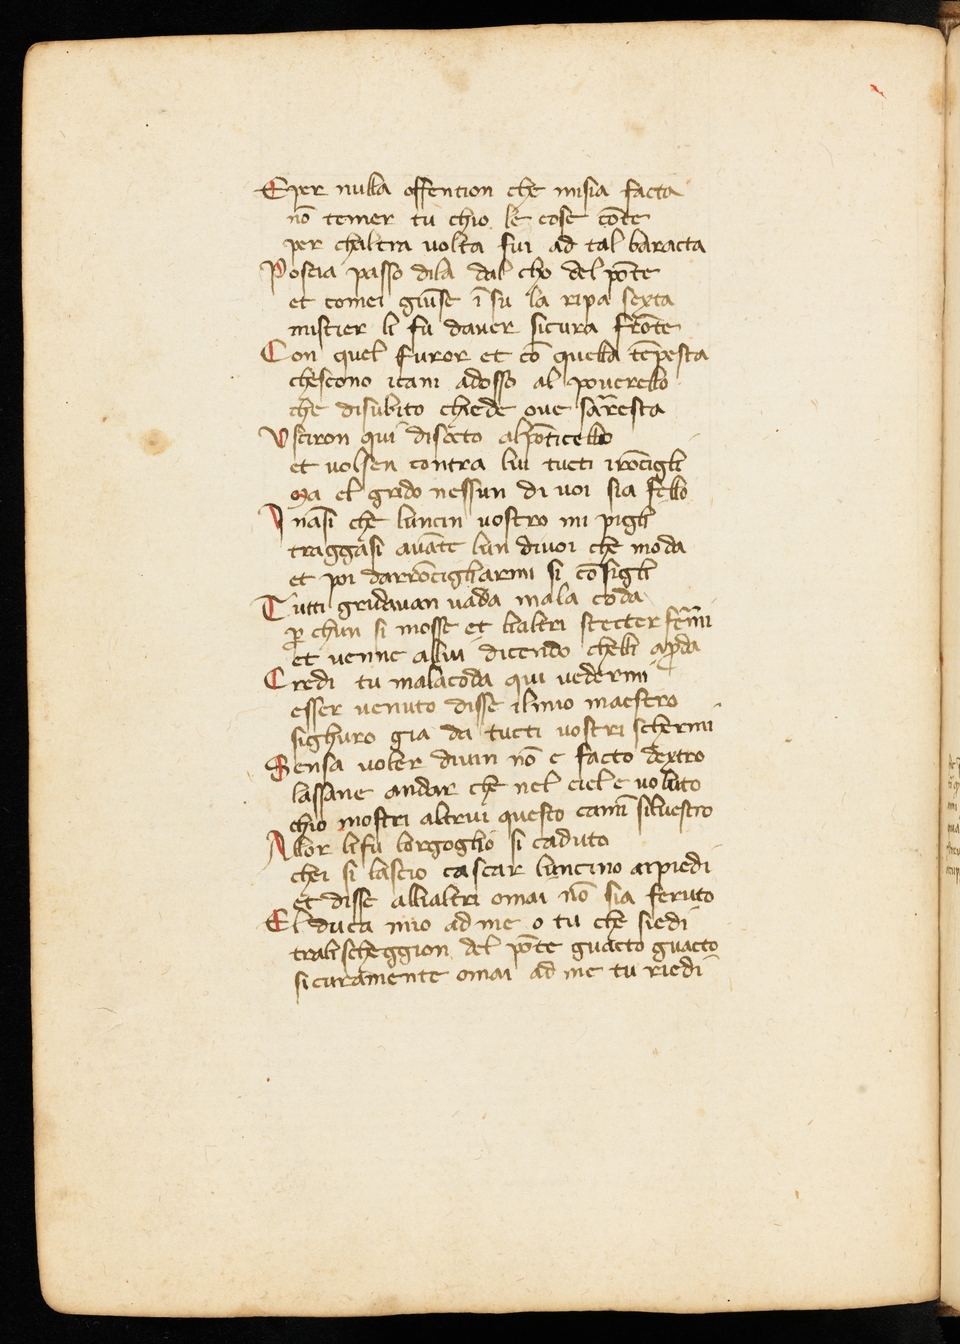 Eper nulla offention che misia facta
nō temer tu chio le cose cōte
per chaltra uolta fui ad tal baracta
Poscia passo dila dal cho del pōte
et comei giūse ī su la ripa sexta
mistier li fu dauer sicura frōte
Con quel furor et cō quella tēpesta
chescono icani adosso al pouerello
che disubito chiede oue sarresta
Usciron qui disocto alpōticello
et uolsen contra lui tucti irōcigli
Ma el grido nessun di uoi sia fello
Ināsi che luncin uostro mi pigli
traggasi auāte lun diuoi che moda
et poi darrōcigliarmi si cōsigli
Tutti gridauan uada mala coda
per chun si mosse et lialtri stecter fermi
et uenne allui dicendo chelli aproda
Credi tu malacoda qui uedermi
esser uenuto disse ilmio maestro
sighuro gia da tucti uostri schermi
Sensa uoler diuin nō e facto dextro
lassane andar che nel ciel e uoluto
chio mostri altrui questo camī siluestro
Allor lifu lorgoglio si caduto
chei si lascio cascar luncino aipiedi
et disse allialtri omai nō sia feruto
El duca mio ad me o tu che siedi
tralischeggion del pōte guacto guacto
sicuramente omai ad me tu riedi